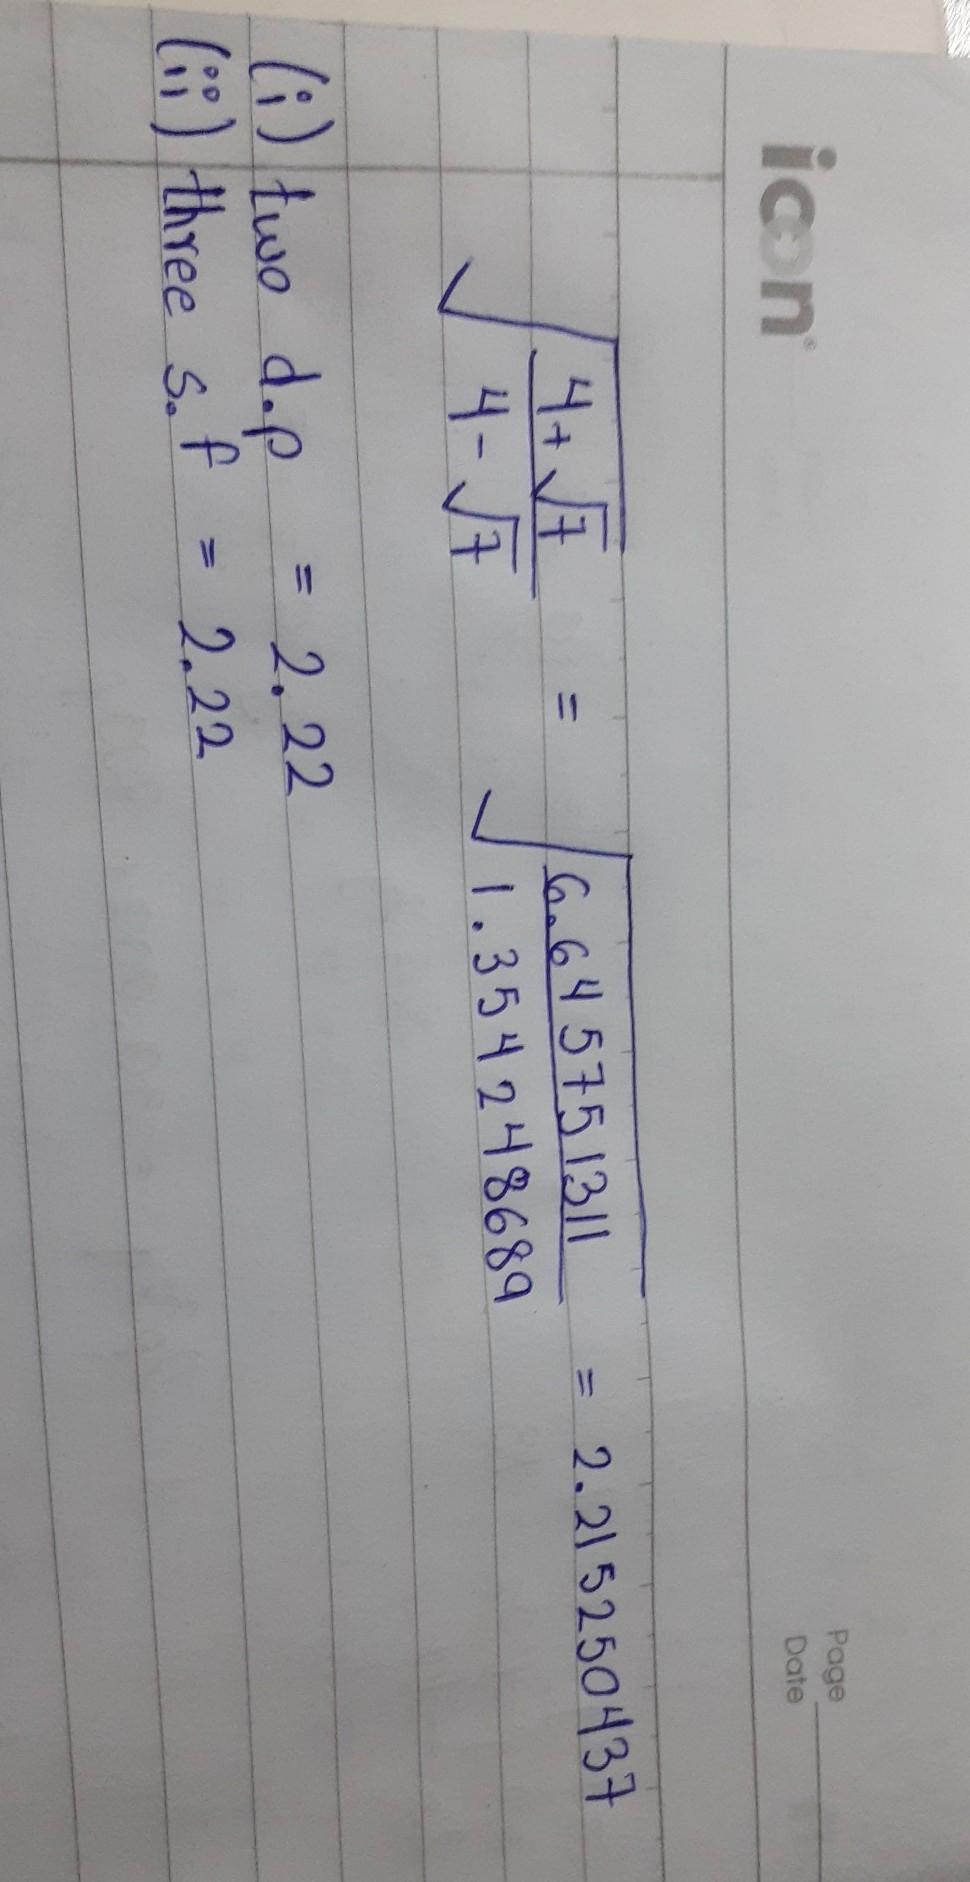 icon
Page
Date
√((4+√7)/(4-√7)) = √(6.645751311/1.354248689) = 2.215250437
(i) two d.p = 2.22
(ii) three s.f = 2.22